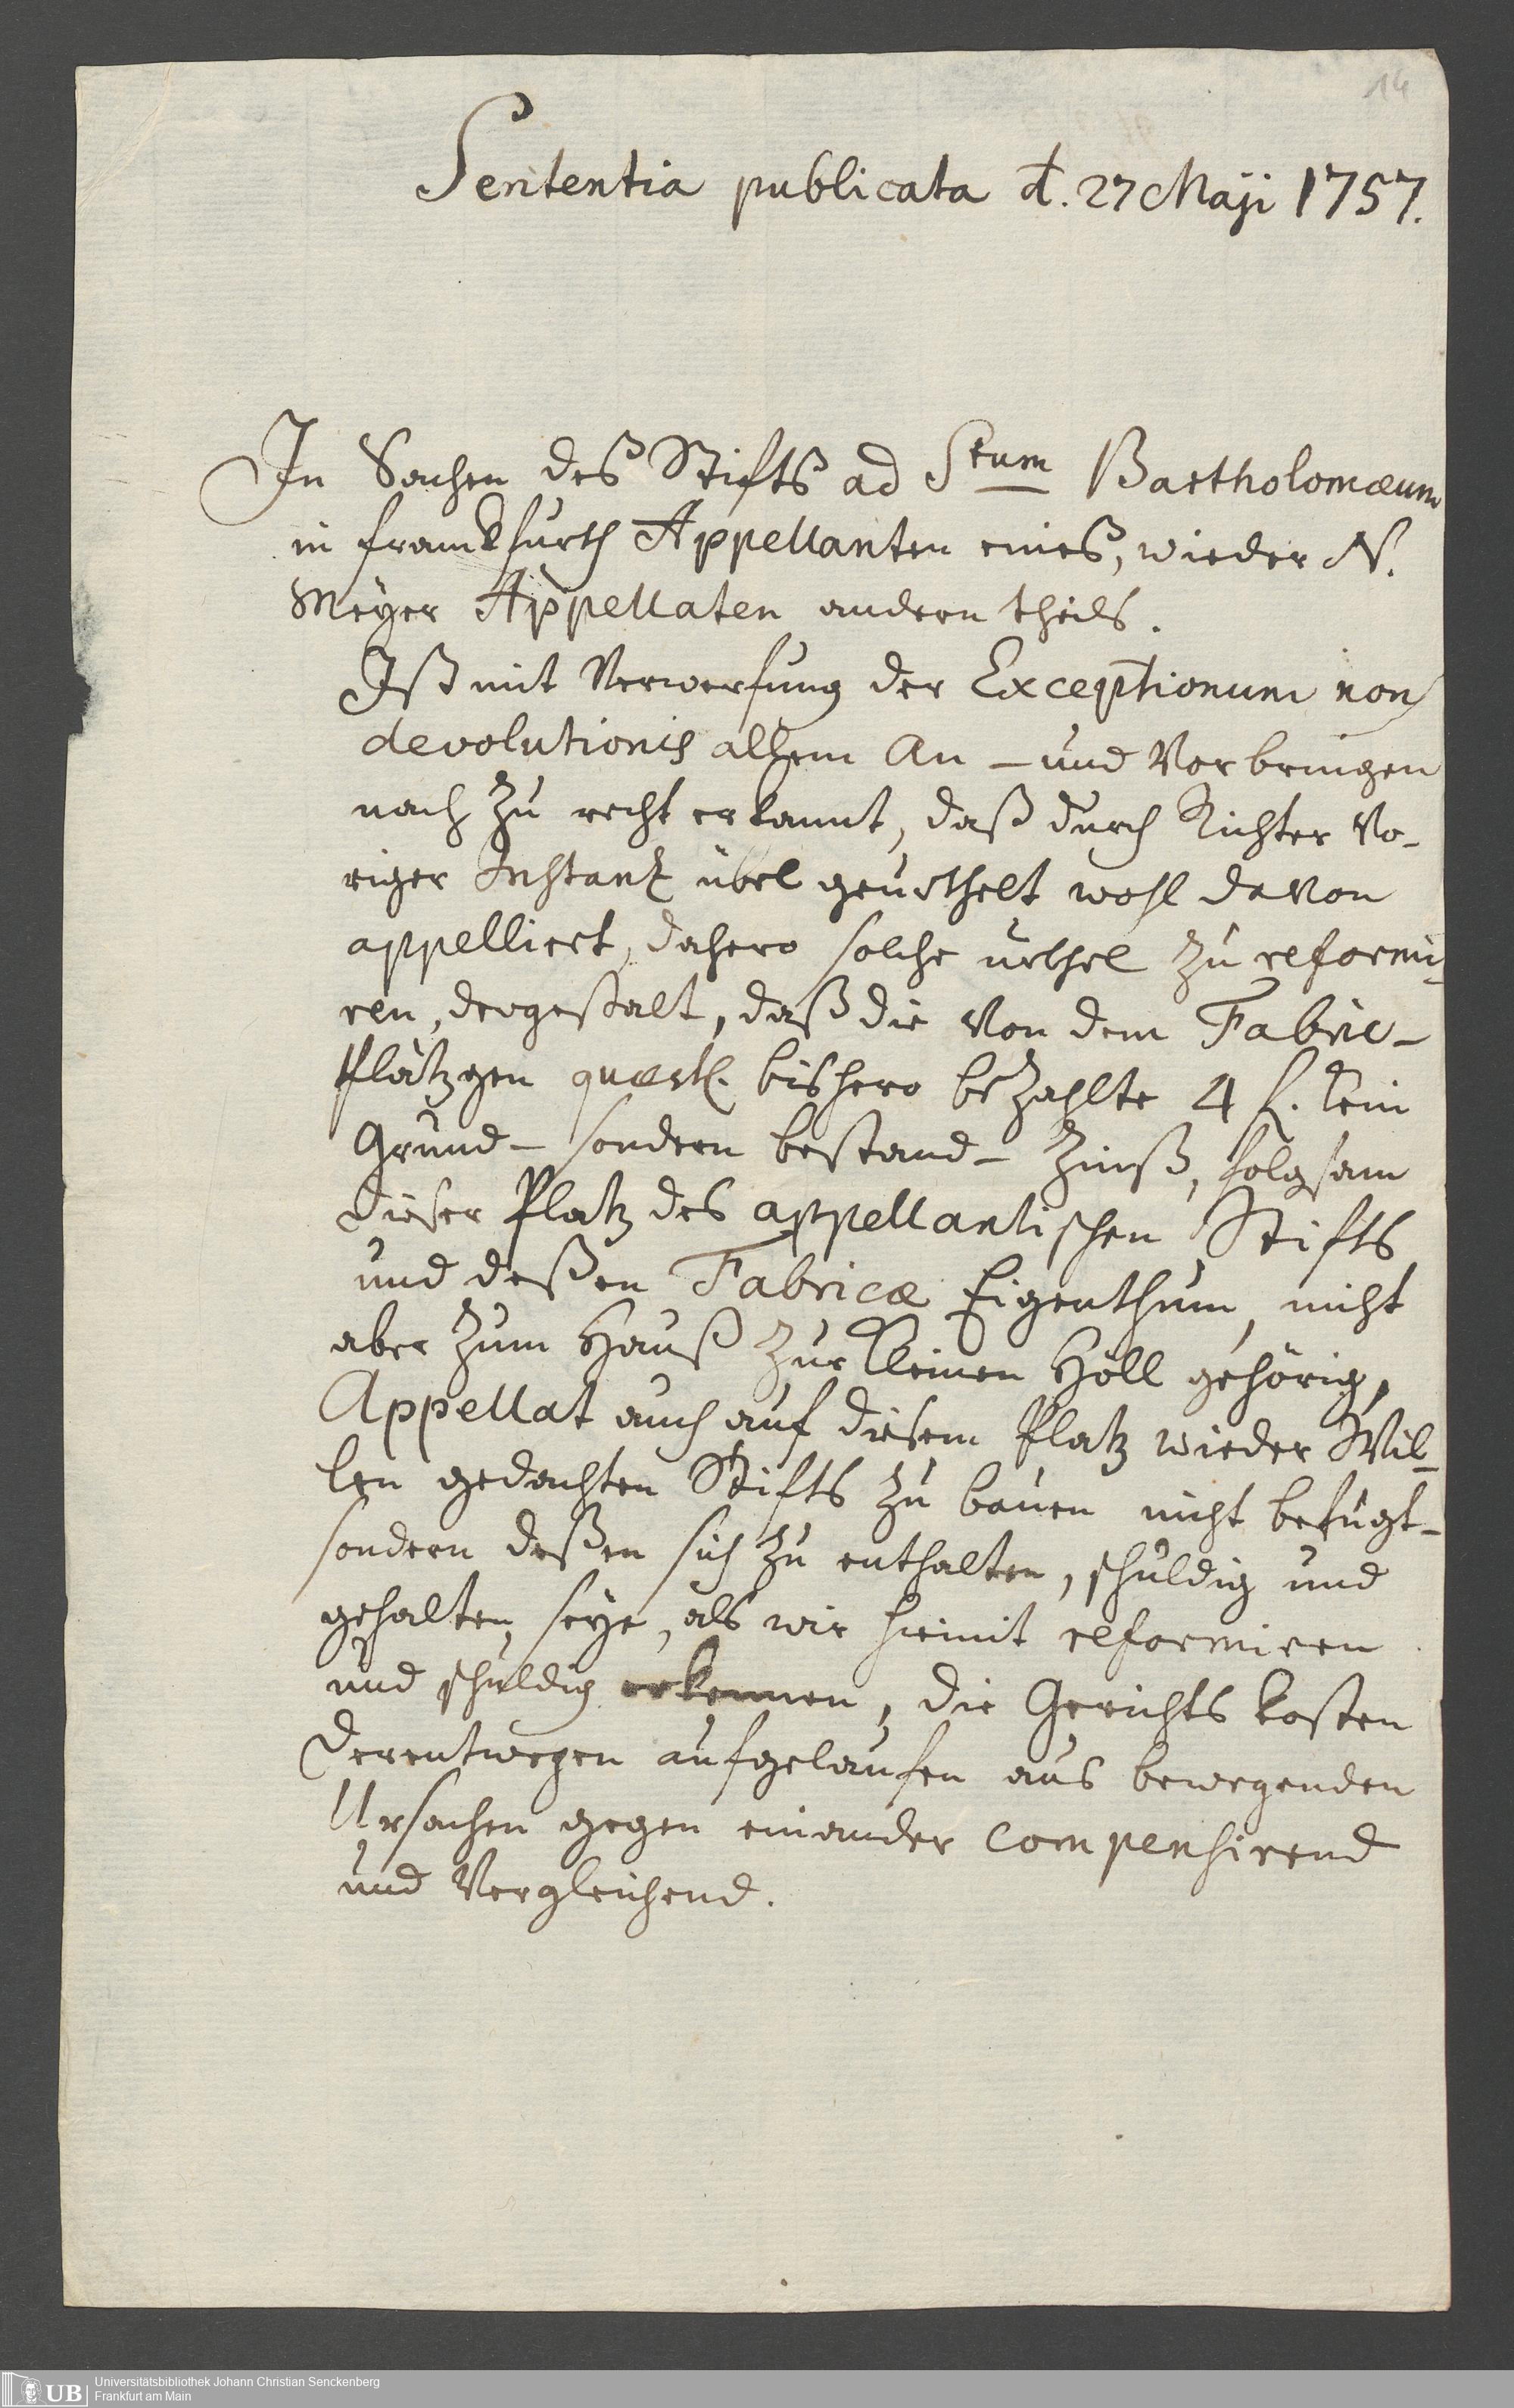 14
Sententia publicata d. 27 Maji 1757.
In Sachen des Stiffts ad Stum Bartholomæum
in franckfurth Appellanten eines, wieder N.
Meyer Appellaten andern theils.
Ist mit Verwerfung der Exceptionum non
devolutionis allem An- und Vorbringen
nach zu recht erkannt, daß durch Richter vo-
riger Instantz übel geurthelt wohl davon
appelliert, dahero solche urthel zu reformi-
ren, dergestalt, daß die von dem Fabric-
Plätzgen quæst. bishero bezahlte 4 f. kein
Grund- sondern bestand- Zinß, folgsam
dieser Platz des appellantischen Stiffts
und deßen Fabricæ Eigenthum, nicht
aber zum Hauß zur kleinen Höll gehörig,
Appellat auch auf diesem Platz wieder Wil-
len gedachten Stiffts zu bauen nicht befugt-
sondern deßen sich zu enthalten, schuldig und
gehalten seye, als wir hiemit reformiren
und schuldig erkennen, die Gerichts kosten
derentwegen aufgelaufen aus bewegenden
Ursachen gegen einander compensirend
und Vergleichend.
UB
Universitätsbibliothek Johann Christian Senckenberg
Frankfurt am Main